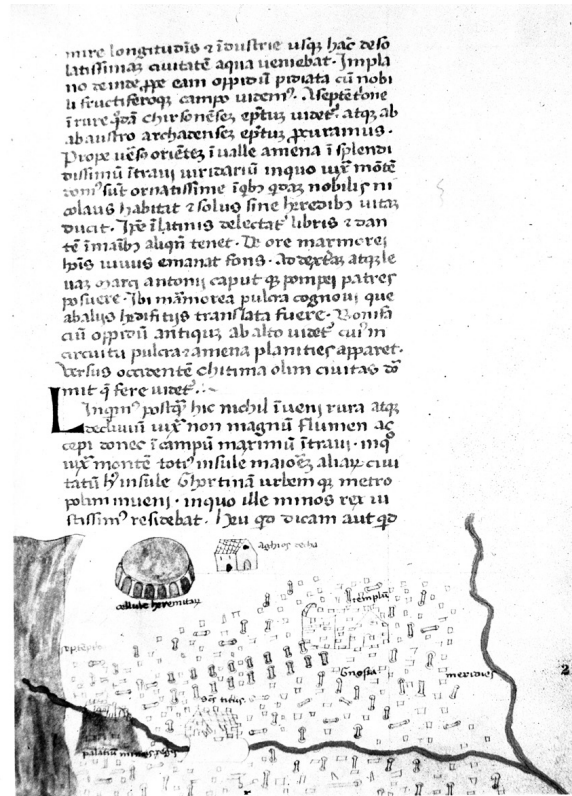 mire longitudis ⁊ idustrie usqꝫ hac deso
latissimaꝫ civitatē aqua veniebat. Impla
no deinde ꝓpe eam oppidū cū nobi
li fructiferoqꝫ campo videmꝰ. Aseptētōne
i rure qdā chirsonēseꝫ ep̄tuꝫ videt. atqꝫ ab
ab austro archadenseꝫ ep̄tuꝫ ꝓcuramus.
Prope orientēꝫ i valle amena i splendi
dissimū itravi viridariū inquo iuxͣ mōtē
sūt ornatissime nobilis ni
colaus habitat ⁊ solus sine heredibꝰ vitaꝫ
ducit. latinis delectat libris ⁊ dan
tē i maibꝫ aliqn̄ tenet. De ore marmorei
hoīs vivus emanat fons. Ad dexteꝫ atqꝫ le
vaꝫ marci antonii caput qꝫ pompei patres
posuere. Ibi mārmorea pulcra cognovi que
ab aliis hedifitiis translata fuere. Bonifa
ciū oppidū antiquꝫ ab alto videt cuiꝰ in
circuitu pulcra ⁊ amena planities apparet.
Versus occidentē chitima olim civitas dō
mit q̄ fere videt.
Linquimꝰ postqꝫ hic nichil i veni rura atqꝫ
declivū iuxͣ non magnū flumen ac
cepi donec i cāpū maximū itravi. inqꝰ
iuxͣ montē totiꝰ insule maiorēꝫ aliaꝝ civi
tatū hꝰ insule Ghortinā urbem qꝫ metro
polim inveni. inquo ille minos rex iu
stissimꝰ residebat. Heu qd dicam aut qd
cellule heremitaꝝ
templū
Gnosia
meridies
titus
palatiū minois regis
2